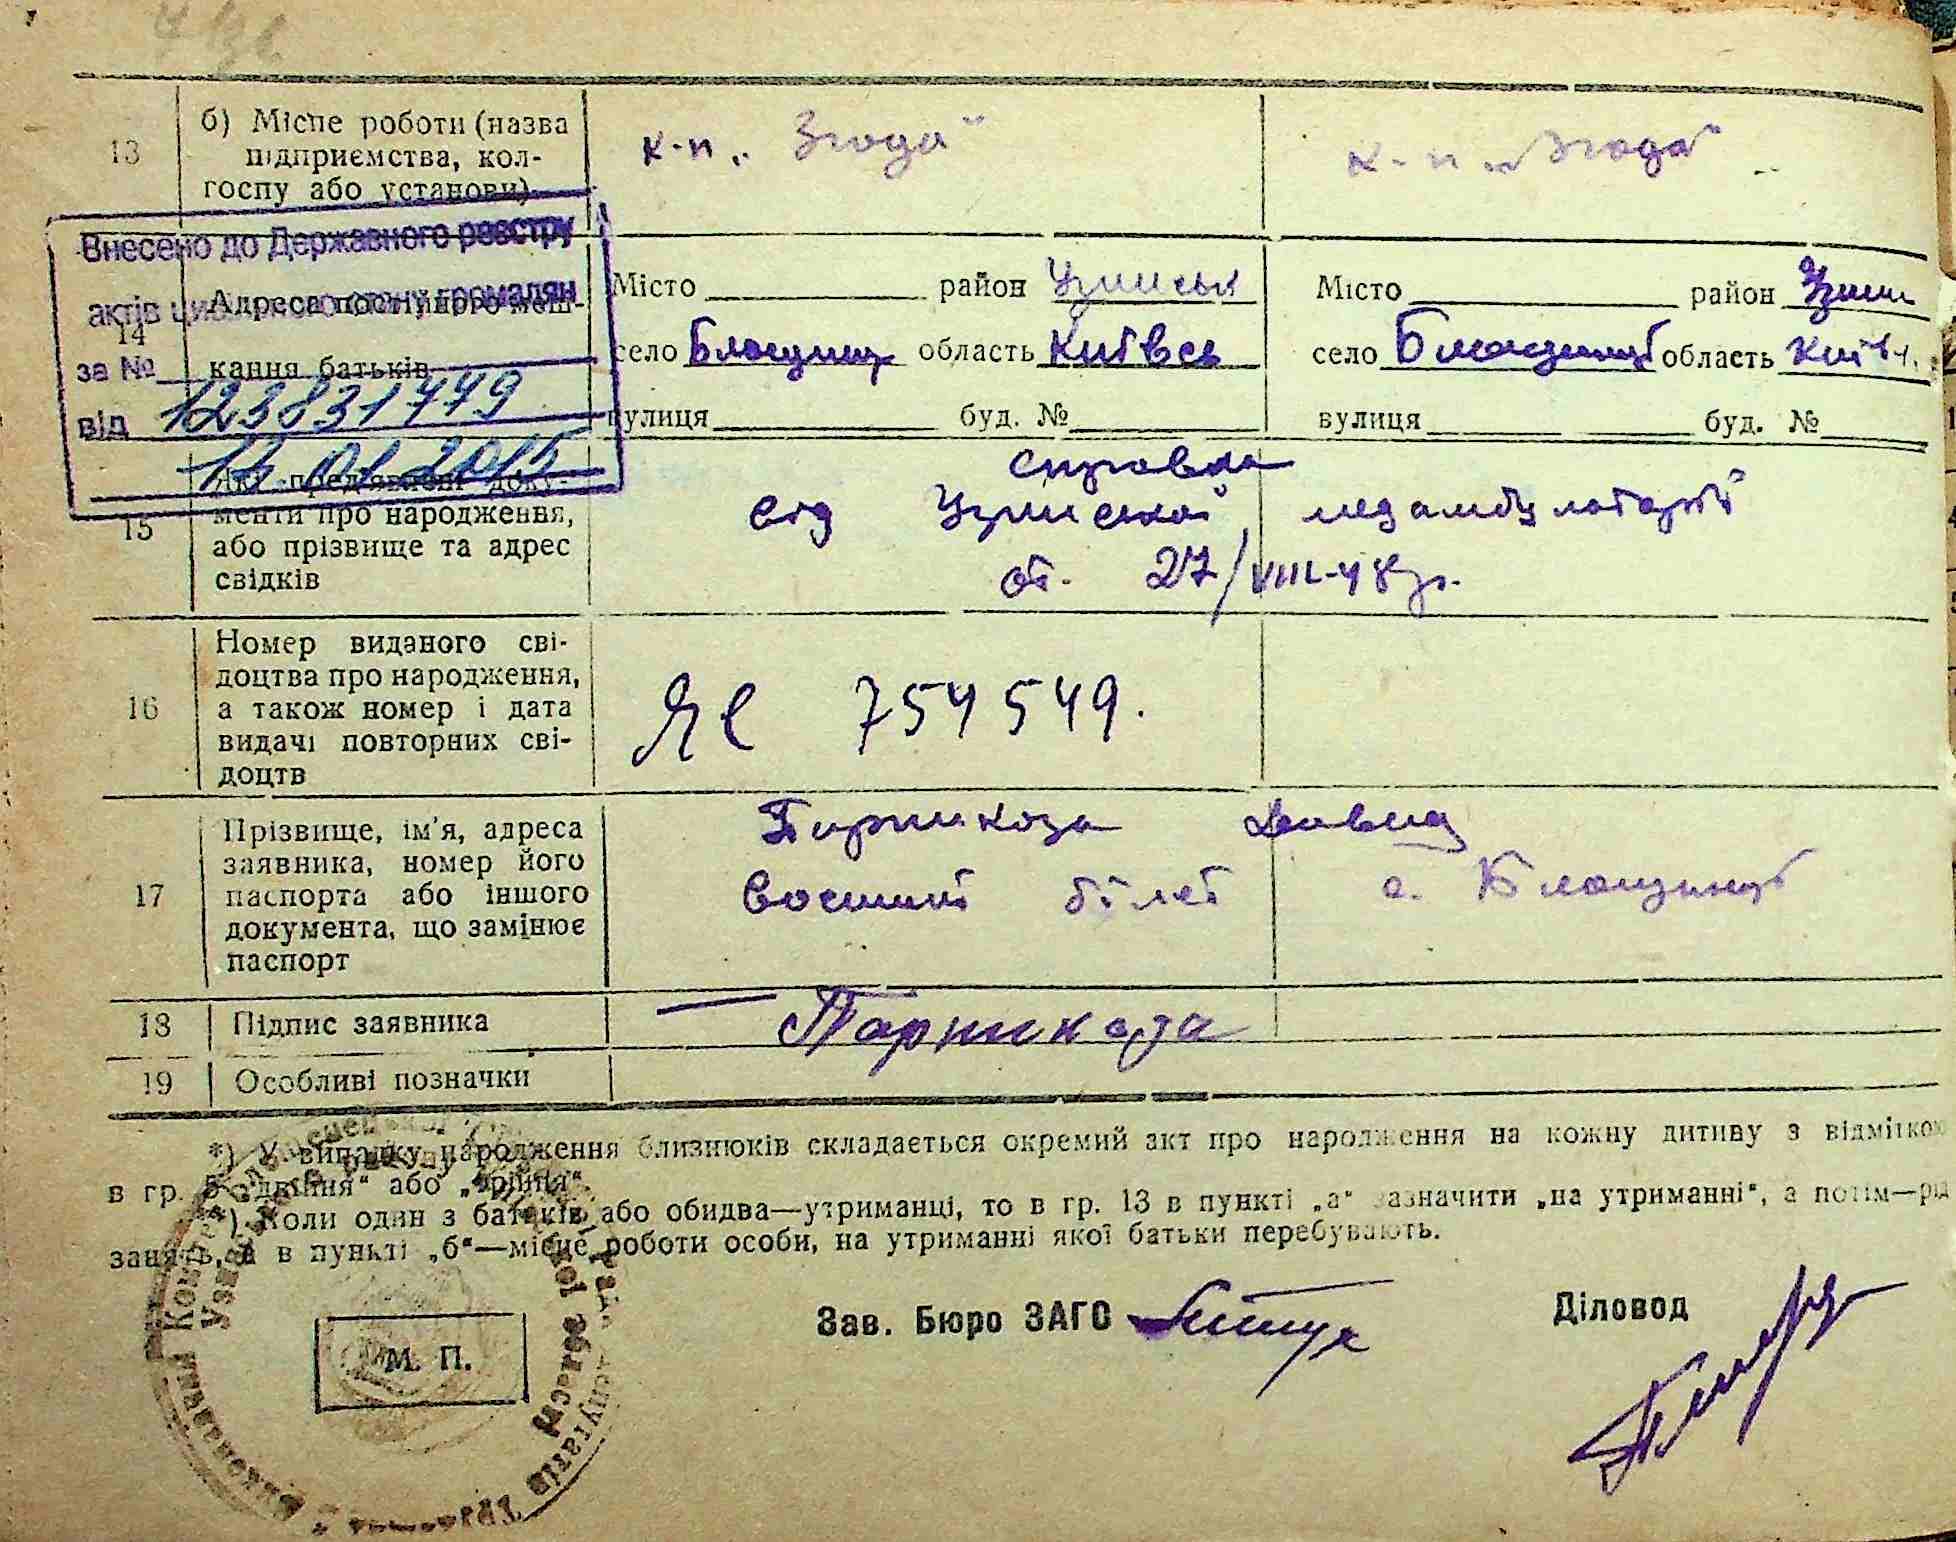 13
б) Місце роботи (назва
підприємства, кол-
госпу або установи)
к-п „Згода"
к-п „Згода"
Внесено до Державного реєстру
актів цивільного стану громадян
за № 123831779
від 12 01 2015
14
Адреса постійного меш-
кання батьків
Місто район Узинськ
село Блощинці область Київсь
вулиця буд. №
Місто район Узин
село Блощинці область Київ.
вулиця буд. №
15
Які пред'явлені доку-
менти про народження,
або прізвище та адрес
свідків
справка
від Узинської медамбулаторії
от. 27/VIII-48 р.
16
Номер виданого сві-
доцтва про народження,
а також номер і дата
видачі повторних сві-
доцтв
ЯЄ 754549.
17
Прізвище, ім'я, адреса
заявника, номер його
паспорта або іншого
документа, що замінює
паспорт
Парпикоза Давид
Воєнний білет с. Блощинці
18 Підпис заявника
19 Особливі позначки
*) У випадку народження близнюків складається окремий акт про народження на кожну дитину з відміткою
в гр. 5 „двійня" або „трійня".
*) Коли один з батьків або обидва—утриманці, то в гр. 13 в пункті „а" зазначити „на утриманні", а потім—рід
занять, а в пункті „б"—місце роботи особи, на утриманні якої батьки перебувають.
М. П.
Зав. Бюро ЗАГС
Діловод